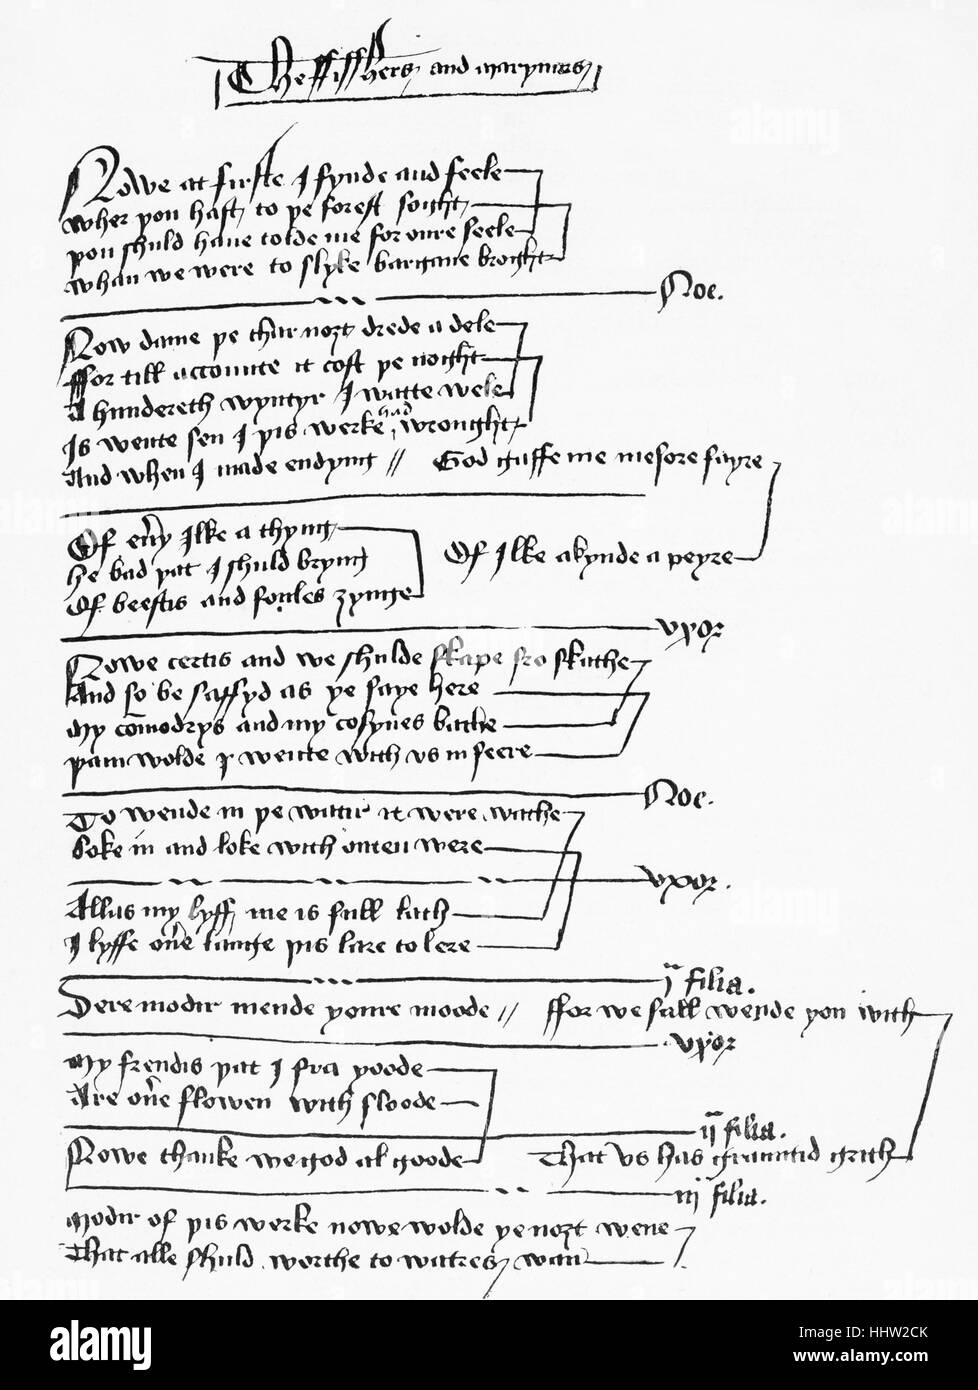 The ffisshers and Marynars
Nowe at firste I fynde and feele
Wher þou hast to þe forest soght
þou shuld haue tolde me for oure seele
Whan we were to slyke bargane broght
Noe.
Now dame þe thar noȝt drede a dele
ffor till accounte it cost þe noght
A hundereth wyntyr I watte wele
Is wente sen I þis werke had wroughte
And when I made endyng // God gaffe me mesore fayre
Of eu'y Ilke a thyng
He bad þat I shuld bryng
Of beestis and foules ȝynge
Of Ilke a kynde a peyre
vxor
Nowe certis and we shulde skape fro skathe
And so be saffyd as ye saye here
My comodrys and my cosynes bathe
þam wolde I wente with vs in feere
Noe.
To wende in þe wattir it were wathe
Loke in and loke with outen were
vxor.
Allas my lyff me is full lath
I lyffe ou'e lange þis lare to lere
j filia.
Dere modir mende youre moode // ffor we sall wende you with
vxor
My frendis þat I fra yoode
Are ou'e flowen with floode
ij filia.
Nowe thanke we god al goode That vs has grauntid grith
iij filia.
Modir of þis werke nowe wolde ye noȝt wene
That alle shuld worthe to watres wan
alamy
Image ID: HHW2CK
www.alamy.com